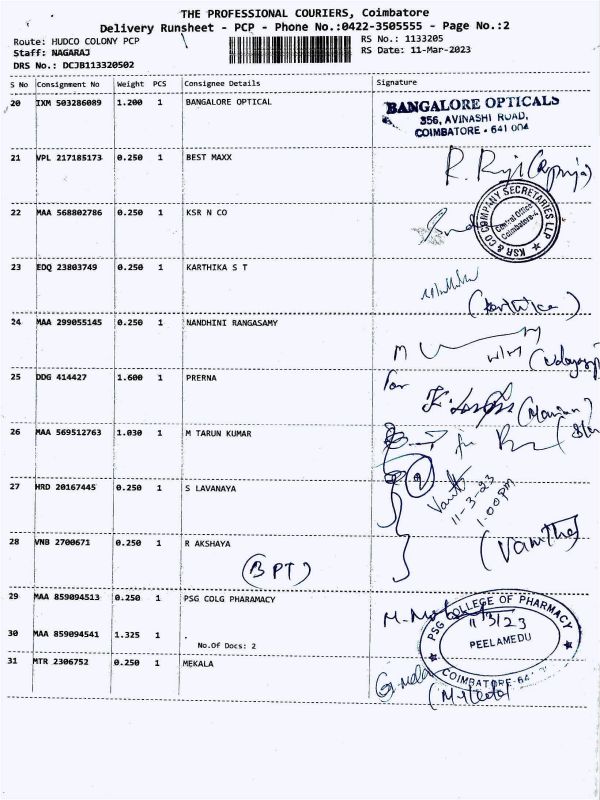 THE PROFESSIONAL COURIERS, Coimbatore
Delivery Runsheet - PCP - Phone No.:0422-3505555 - Page No.:2
Route: HUDCO COLONY PCP
RS No.: 1133205
Staff: NAGARAJ
RS Date: 11-Mar-2023
DRS No.: DCJB113320502
S No Consignment No Weight PCS Consignee Details Signature
20 IXM 503286089 1.200 1 BANGALORE OPTICAL
BANGALORE OPTICALS
356, AVINASHI ROAD,
COIMBATORE - 641 004
21 VPL 217185173 0.250 1 BEST MAXX
22 MAA 568802786 0.250 1 KSR N CO
KSR & CO COMPANY SECRETARIES LLP
Central Office
Coimbatore-4
23 EDQ 23803749 0.250 1 KARTHIKA S T
(Karthika)
24 MAA 299055145 0.250 1 NANDHINI RANGASAMY
25 DDG 414427 1.600 1 PRERNA
For
26 MAA 569512763 1.030 1 M TARUN KUMAR
27 HRD 20167445 0.250 1 S LAVANAYA
11-3-23
1.00pm
28 VNB 2700671 0.250 1 R AKSHAYA
(Vanitha)
(BPT)
29 MAA 859094513 0.250 1 PSG COLG PHARAMACY
PSG COLLEGE OF PHARMACY
11/3/23
PEELAMEDU
COIMBATORE-64
30 MAA 859094541 1.325 1 .
No.Of Docs: 2
31 MTR 2306752 0.250 1 MEKALA